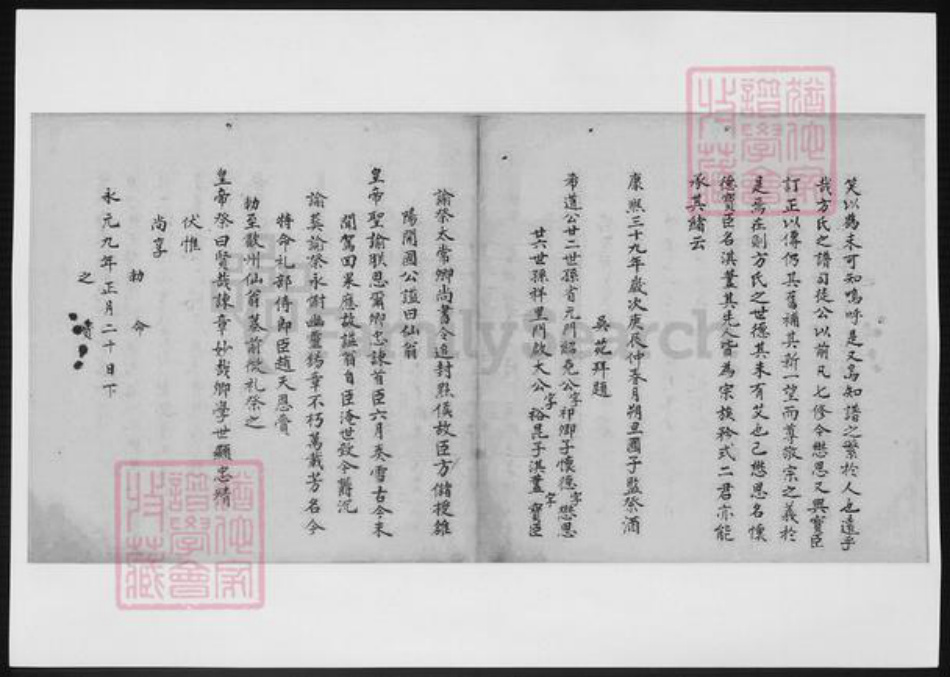 笑以為未可知嗚呼是又烏知譜之繫於人也遠乎
哉方氏之譜司徒公以前凡七修今懋思又與寶臣
訂正以傳仍其舊補其新一望而尊敬宗之義於
是焉在則方氏之世德其未有艾也已懋思名懷
德寶臣名淇藎其先人皆為宗族矜式二君亦能
承其緒云
吳苑拜題
康熙三十九年歲次庚辰仲春月朔旦國子監祭酒
希道公廿二世孫首元門紹堯公字祁卿子懷德字懋思
廿六世孫祥里門啟大公字裕昆子淇藎字寶臣
諭祭太常卿尚書令追封黟侯故臣方儲授雒
陽開國公諡曰仙翁
皇帝聖諭朕思爾卿忠諫首臣六月奏雪古今未
聞駕回果應故諡翁自臣淹世致令爵沉
諭英諭祭永謝幽靈揚章不朽萬載芳名今
特命礼部侍郎臣趙天恩賫
勅至歙州仙翁墓前儆礼祭之
皇帝祭曰賢哉諫章妙哉卿學世顯忠靖
伏惟
尚享
勅命
永元九年正月二十日下
之寶
猶他家譜學會收藏
FamilySearch
猶他家譜學會收藏